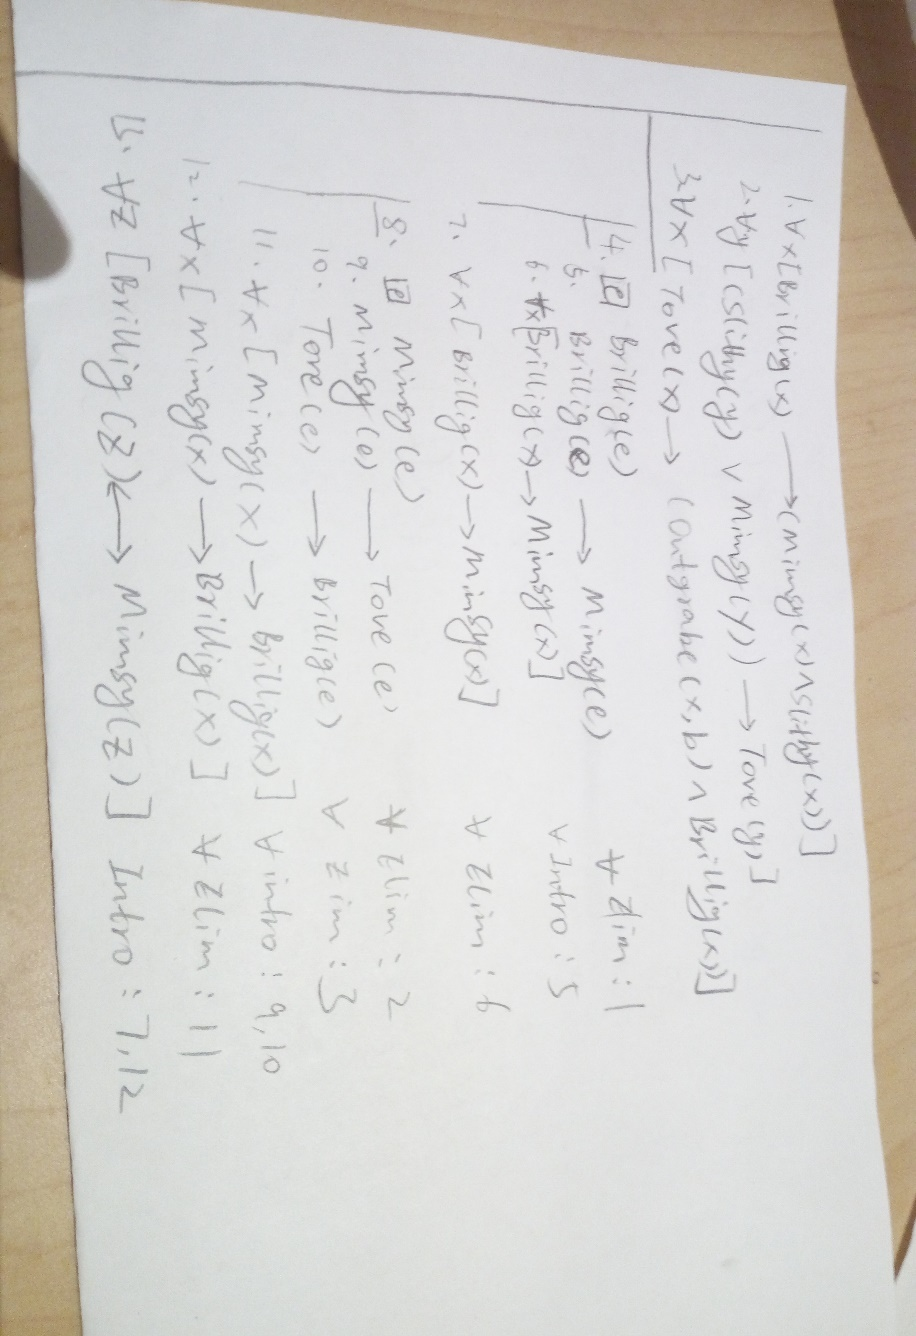 1. ∀x[Brillig(x) → (Mimsy(x) ∧ Slithy(x))]
2. ∀y[(Slithy(y) ∨ Mimsy(y)) → Tove(y)]
3. ∀x[Tove(x) → (Outgrabe(x,b) ∧ Brillig(x))]
4. [e] Brillig(e)
5. Brillig(e) → Mimsy(e) ∀ Elim: 1
6. ∀x[Brillig(x) → Mimsy(x)] ∀ Intro: 5
7. ∀x[Brillig(x) → Mimsy(x)] ∀ Elim: 6
8. [e] Mimsy(e)
9. Mimsy(e) → Tove(e) ∀ Elim: 2
10. Tove(e) → Brillig(e) ∀ Elim: 3
11. ∀x[Mimsy(x) → Brillig(x)] ∀ intro: 9,10
12. ∀x[Mimsy(x) → Brillig(x)] ∀ Elim: 11
13. ∀z[Brillig(z) ↔ Mimsy(z)] Intro: 7,12